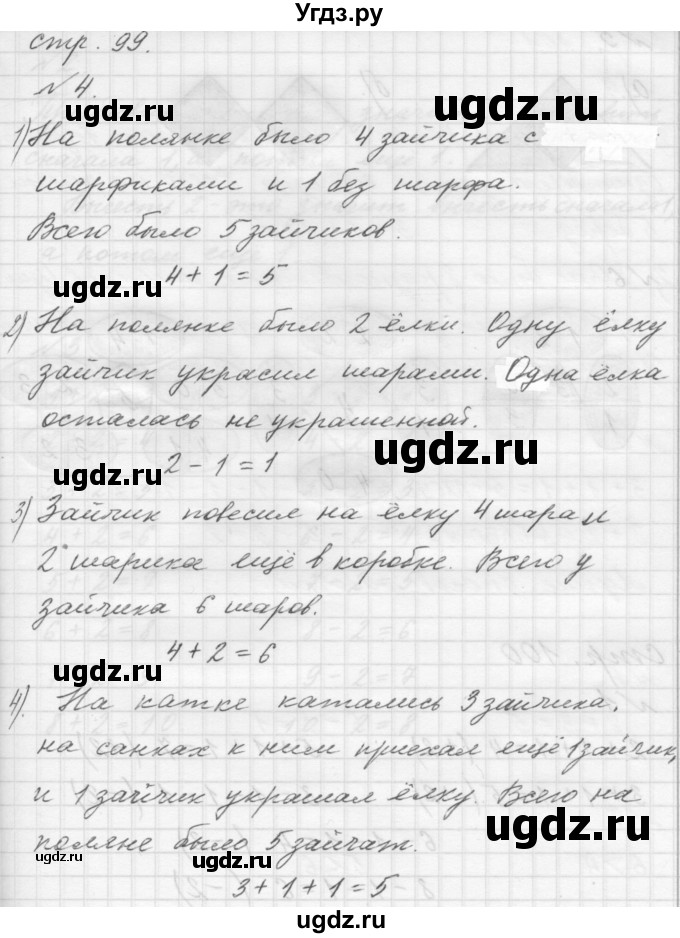 Угдз.ру
стр. 99.
№ 4.
ugdz.ru ugdz.ru
1) На полянке было 4 зайчика с
шарфиками и 1 без шарфа.
Всего было 5 зайчиков.
ugdz.ru 4 + 1 = 5
2) На полянке было 2 ёлки. Одну ёлку
зайчик украсил шарами. Одна ёлка
осталась не украшенной.
ugdz.ru 2 - 1 = 1 ugdz.ru
3) Зайчик повесил на ёлку 4 шара и
2 шарика ещё в коробке. Всего у
зайчика 6 шаров.
ugdz.ru 4 + 2 = 6
4). На катке катались 3 зайчика,
на санках к ним приехал ещё 1 зайчик,
и 1 зайчик украшал ёлку. Всего на
ugdz.ru
поляне было 5 зайчат.
ugdz.ru ugdz.ru
3 + 1 + 1 = 5
ugdz.ru